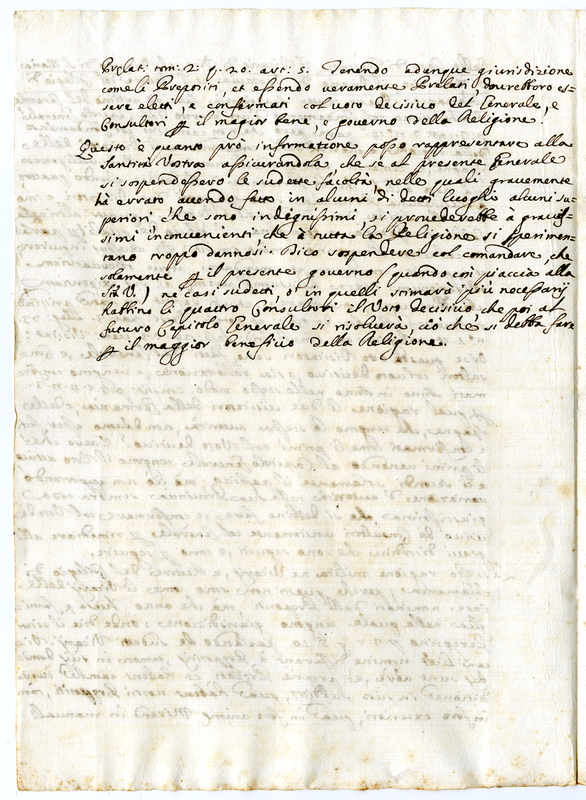 Prelat: tom: 2: q. 20. art: 5. Tenendo adunque giurisdizione
come li Prepositi, et essendo veramente Prelati dovrebbero es-
sere eletti, e confermati col voto decisivo del Generale, e
Consultori p il magior bene, e governo della Religione.
Questo è quanto pro informatione posso rappresentare alla
Santità Vostra assicurandola che se al presente Generale
si sospendessero le sudette facoltà, nelle quali gravemente
hà errato avendo fatto in alcuni di detti luoghi alcuni su-
periori che sono indegnissimi, si provederebbe à gravis-
simi inconvenienti, che à tutta la Religione si sperimen-
tano troppo dannosi. Dico sospendere col comandare, che
solamente p il presente governo (quando così piaccia alla
Stà V.) ne casi sudetti, o in quelli stimarà più necessarij
habbino li quattro Consultori il Voto decisivo che poi al
futuro Capitolo Generale si risolverà, ciò che si debba fare
p il maggior beneficio della Religione.